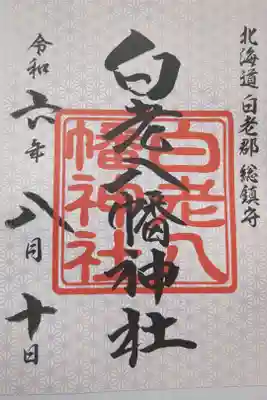 北海道白老郡総鎮守
白老八幡神社
白老八
幡神社
令和六年八月十日